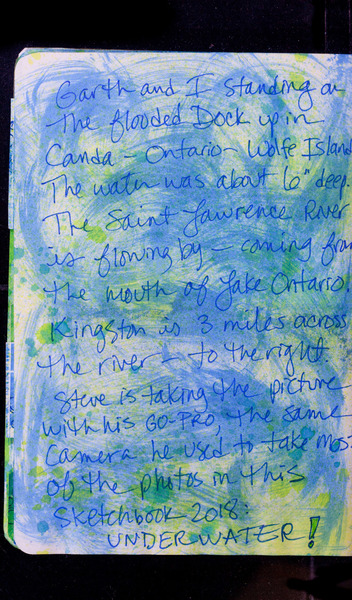 Garth and I standing on
the flooded Dock up in
Canda - Ontario - Wolfe Island
The water was about 6" deep.
The Saint Lawrence River
is flowing by - coming from
the mouth of Lake Ontario.
Kingston is 3 miles across
the river - to the right.
Steve is taking the picture
with his GO-PRO, the same
Camera he used to take mos
of the photos in this
Sketchbook 2018:
UNDERWATER!